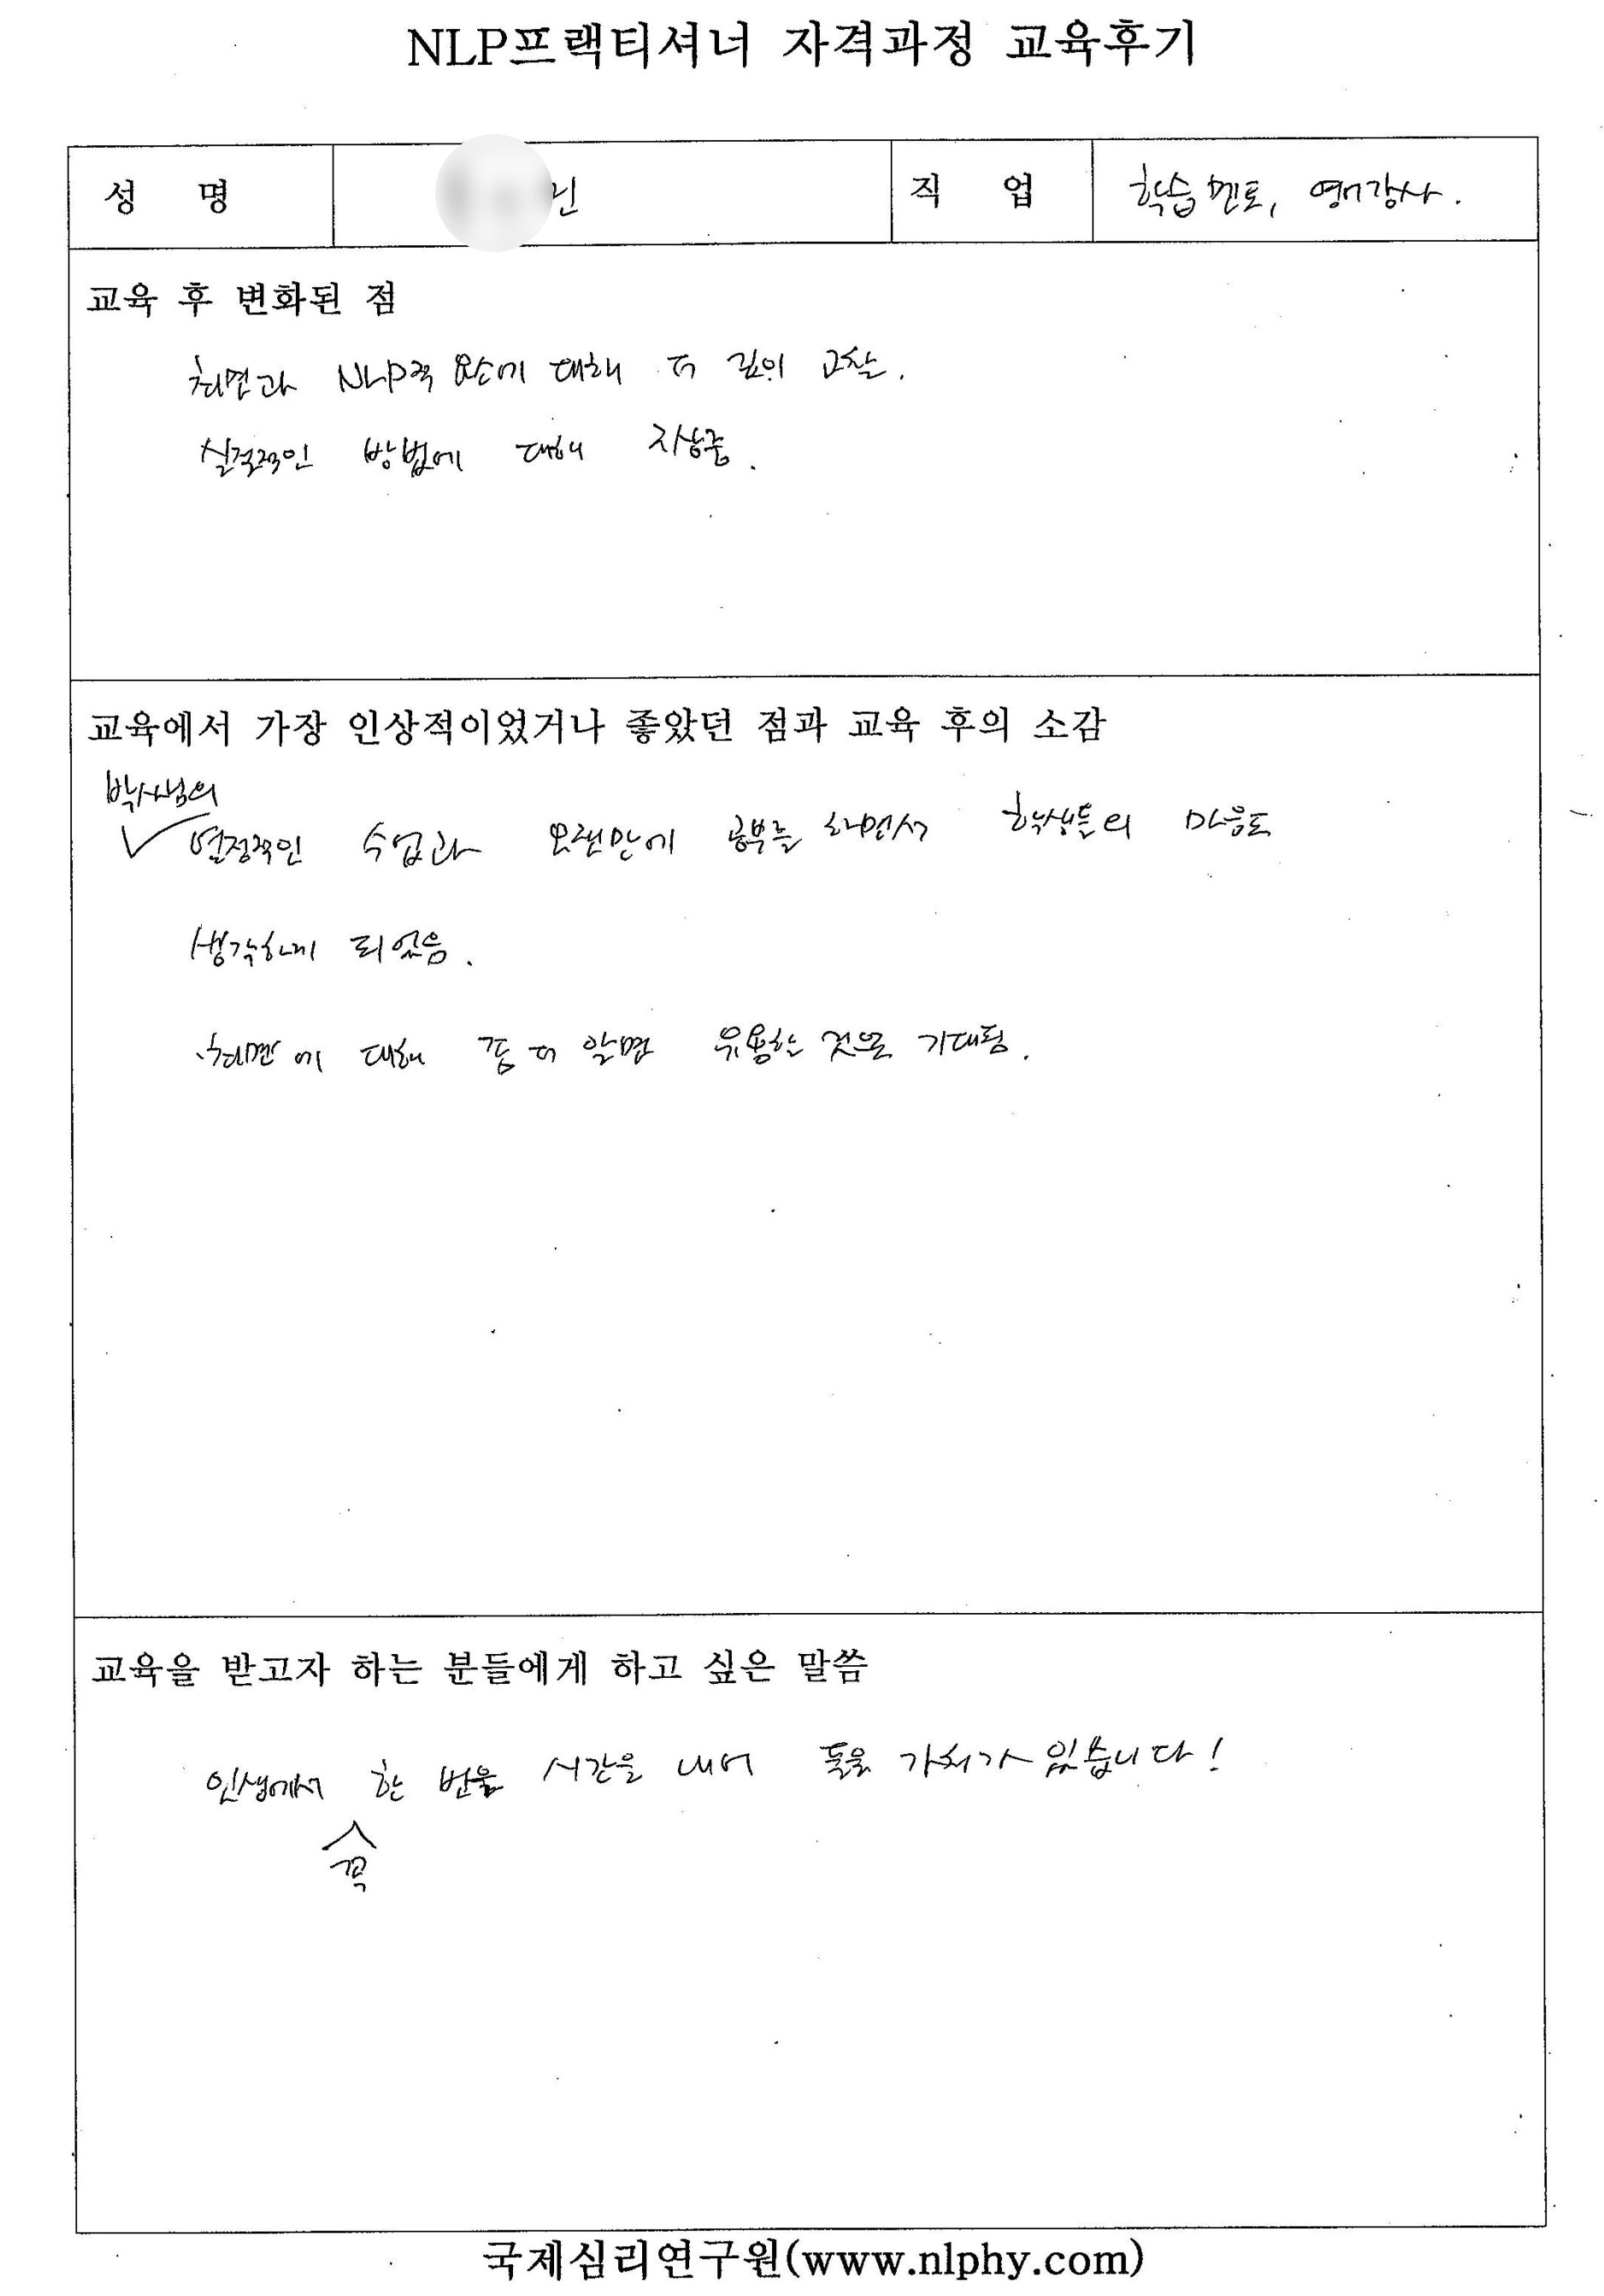 NLP프랙티셔너 자격과정 교육후기
성 명 직 업 학습멘토, 영어강사.
교육 후 변화된 점
최면과 NLP적 요소에 대해 더 깊이 고찰.
실질적인 방법에 대해
교육에서 가장 인상적이었거나 좋았던 점과 교육 후의 소감
박사님의
열정적인 수업과 오랜만에 공부를 하면서 학생들의 마음도
생각하게 되었음.
최면에 대해 좀 더 알면 유용한 것으로 기대됨.
교육을 받고자 하는 분들에게 하고 싶은 말씀
인생에서 한 번은 시간을 내어 들을 가치가 있습니다!
꼭
국제심리연구원(www.nlphy.com)